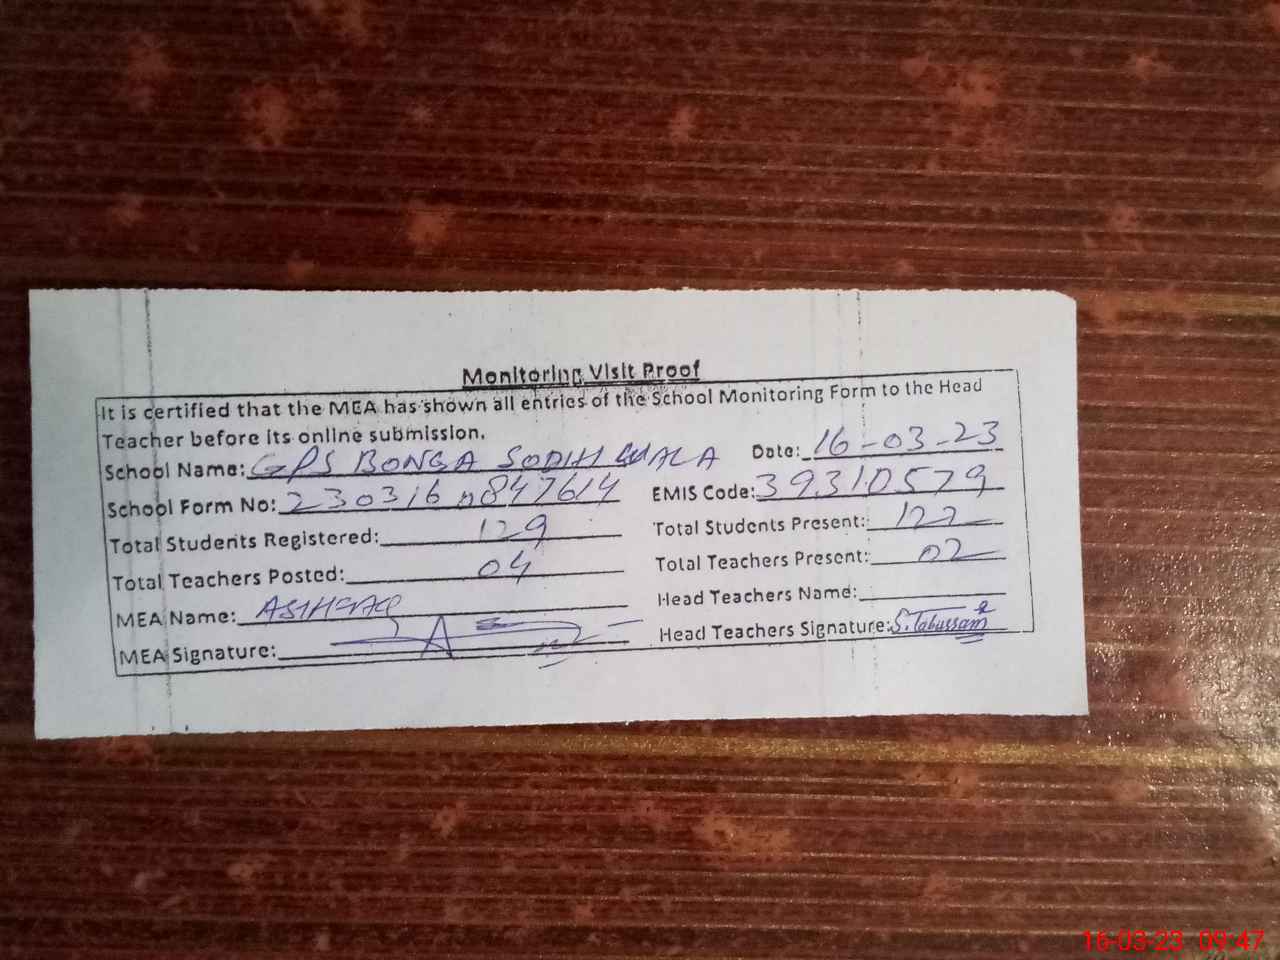 Monitoring Visit Proof
It is certified that the MEA has shown all entries of the School Monitoring Form to the Head
Teacher before its online submission.
School Name: GPS BONGA SODIH WALA Date: 16-03-23
School Form No: 230316n847614 EMIS Code: 39310579
Total Students Registered: 129 Total Students Present: 122
Total Teachers Posted: 04 Total Teachers Present: 02
MEA Name: ASHFAQ Head Teachers Name:
MEA Signature: Head Teachers Signature: S.Tabussam
16-03-23 09:47